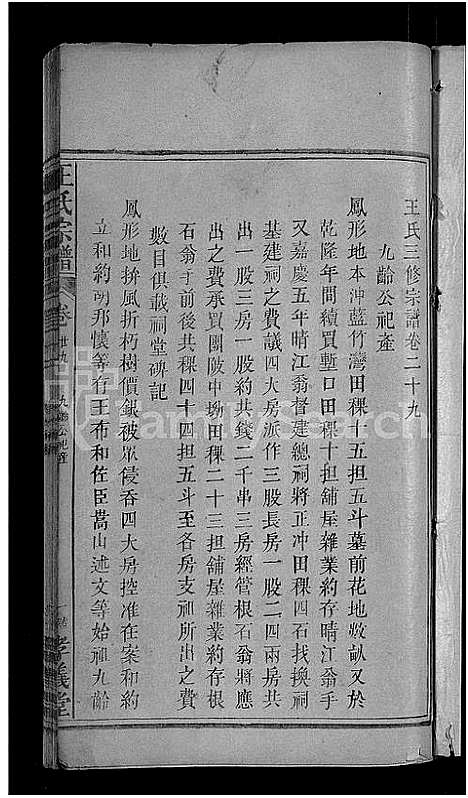 王氏三修宗譜卷二十九
九齡公祀產
鳳形地本沖藍竹灣田稞十五担五斗墓前花地数畝又於
乾隆年間續買塹口田稞十担舖屋雜業約存晴江翁手
又嘉慶五年晴江翁督建總祠將正沖田稞四石找換祠
基建祠之費議四大房派作三股長房一股二四兩房共
出一股三房一股約共錢二千串三房經管根石翁將應
出之費承買團陂中坳田稞二十三担舖屋雜業約存根
石翁手前後共稞四十四担五斗至各房支祖所出之費
數目俱載祠堂碑記
鳳形地拚風折朽樹價銀被眾侵吞四大房控准在案和約
立和約朝那懷等有王布和佐臣蒿山述文等始祖九齡
王氏宗譜
卷廿九
九齡公祀產
孝義堂
FamilySearch